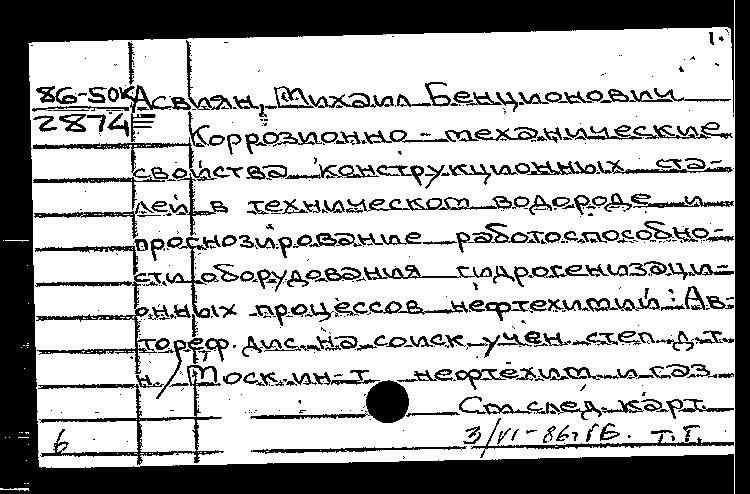 1.
86-50к Асвиян, Михаил Бенционович
2874
Коррозионно-механические
свойства конструкционных ста-
лей в техническом водороде и
прогнозирование работоспособно-
сти оборудования гидрогенизаци-
онных процессов нефтехимии: Ав-
тореф. дис. на соиск. учен. степ. д. т.
н. / Моск. ин-т нефтехим. и газ.
См. след. карт.
6 3/VI-86г. ГБ. Т.Г.